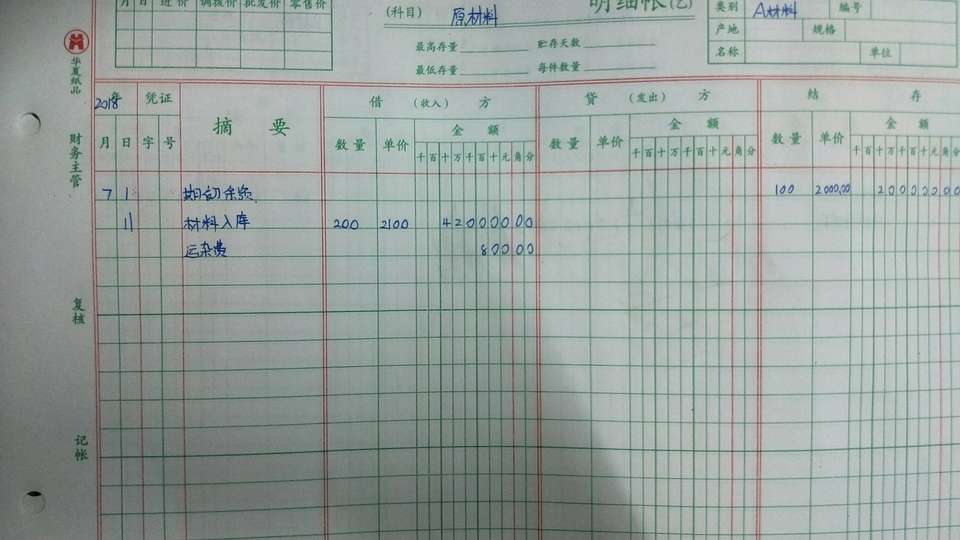 月 日 进价 调拨价 批发价 零售价
(科目) 原材料
明细帐(乙)
类别 A材料 编号
产地 规格
名称 单位
最高存量 贮存天数
最低存量 每件数量
华夏纸品
财务主管
复核
记帐
2018年 凭证 摘要 借(收入)方 贷(发出)方 结存
月 日 字 号 数量 单价 金额 数量 单价 金额 数量 单价 金额
千百十万千百十元角分 千百十万千百十元角分 千百十万千百十元角分
7 1 期初余额 100 2000.00 20000000
11 材料入库 200 2100 42000000
运杂费 80000